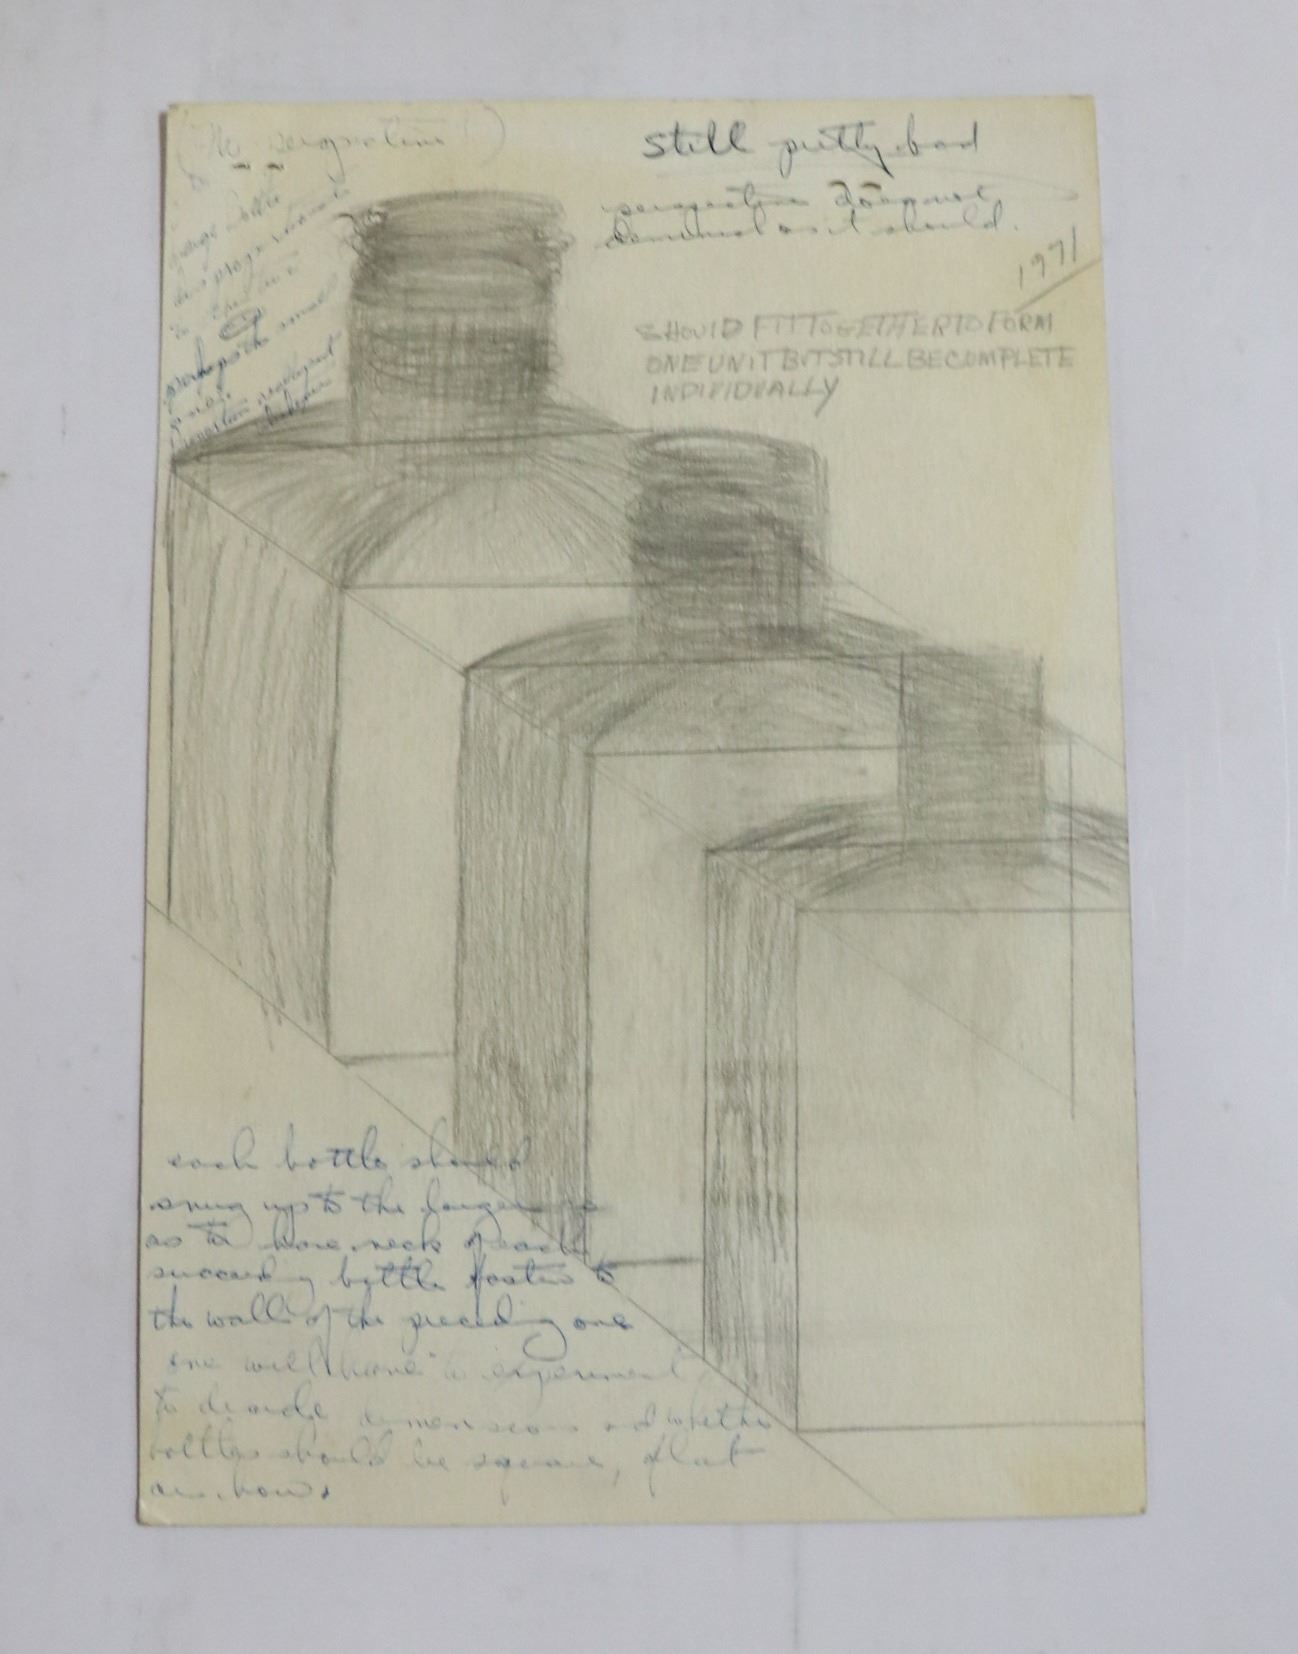 Still pretty bad
perspective does not
diminish as it should.
1971
SHOULD FIT TOGETHER TO FORM
ONE UNIT BUT STILL BE COMPLETE
INDIVIDUALLY
(No perspective!)
large bottle
has
to
perhaps the small
is not.
each bottle should
snug up to the larger
as to have neck of each
succeeding bottle fasten to
the wall of the preceding one
one will have to experiment
to decide dimensions and whether
bottles should be square, flat
or how.